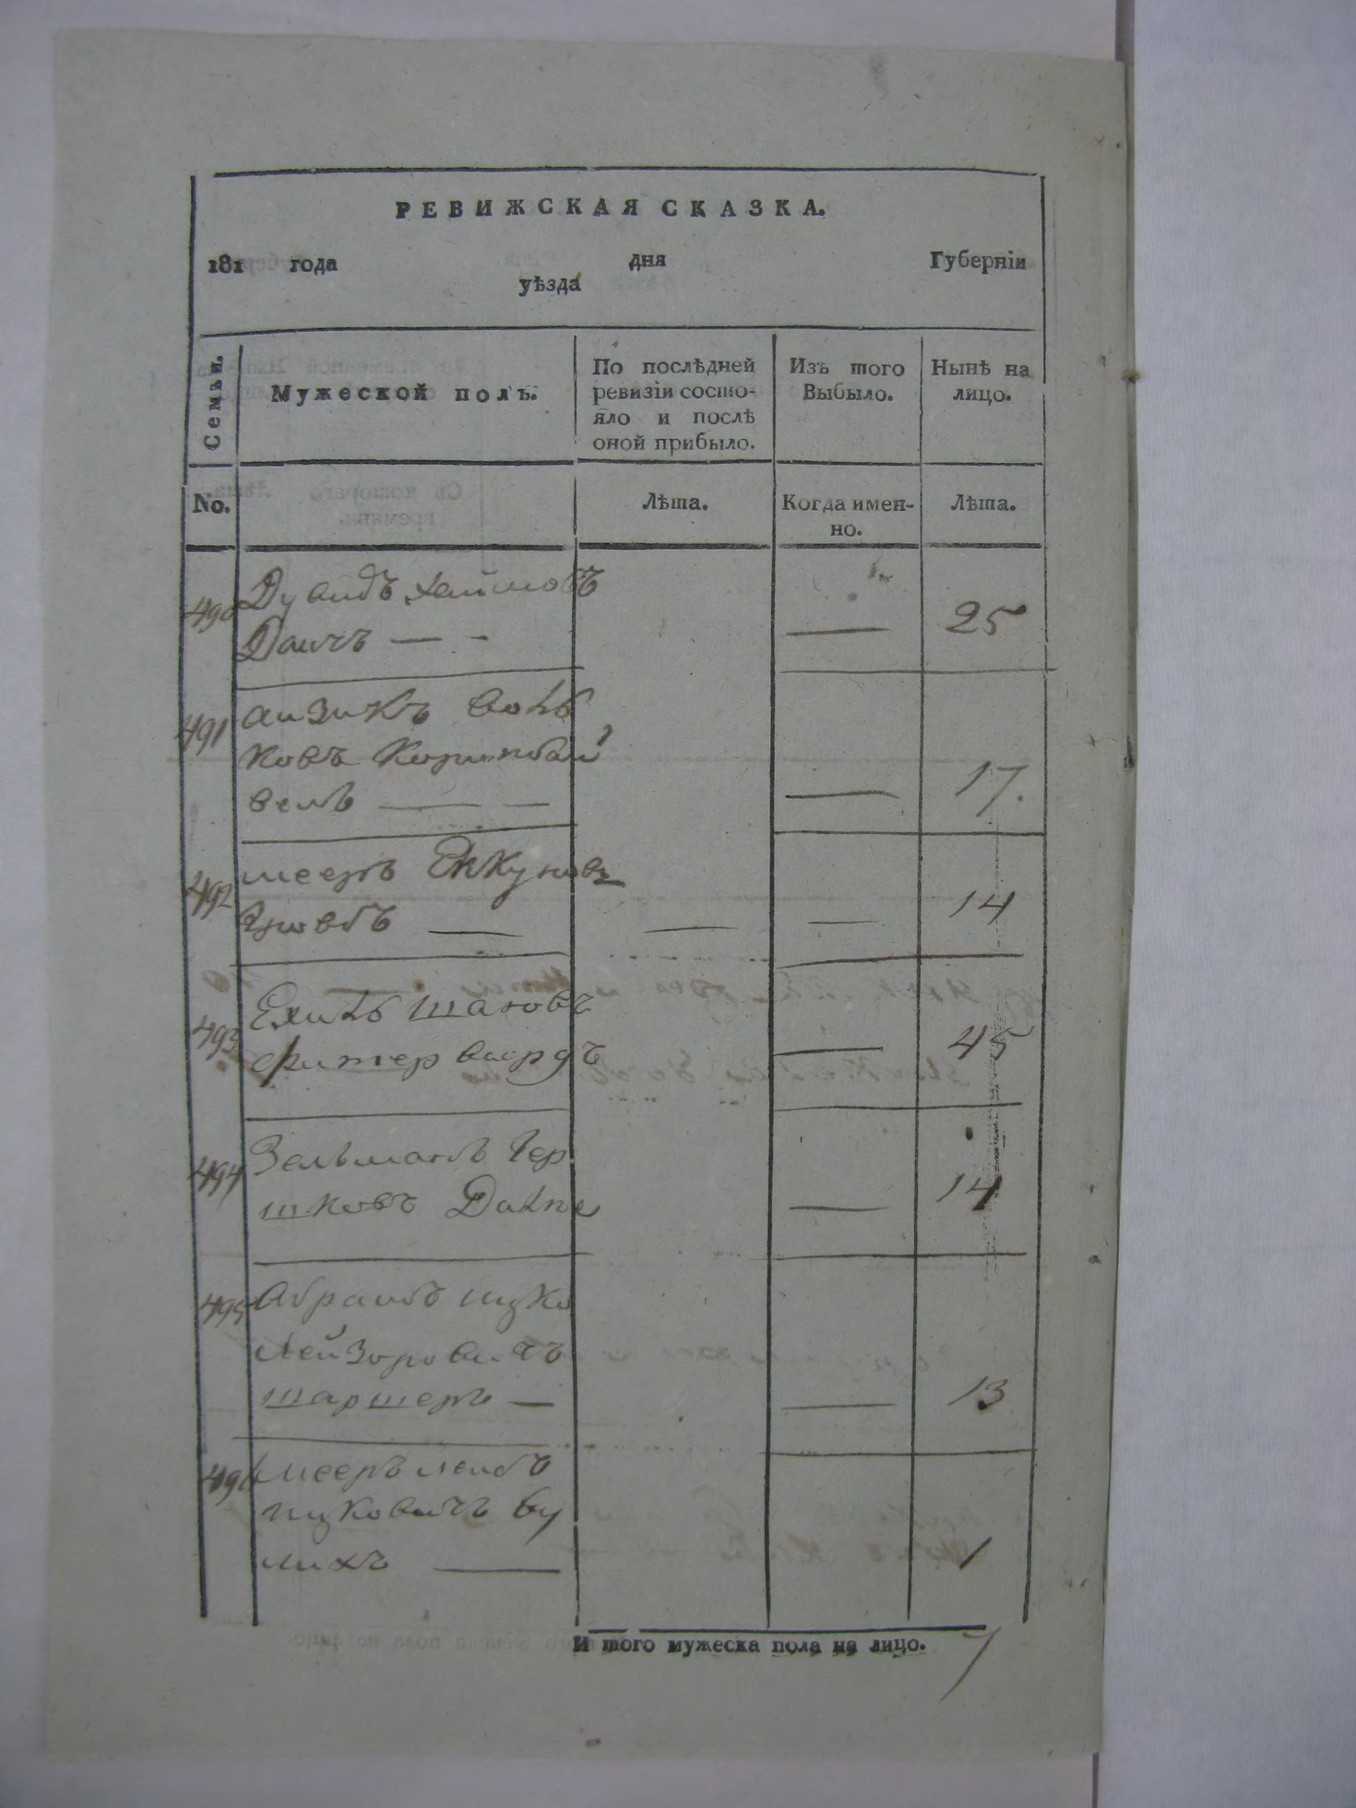 РЕВИЖСКАЯ СКАЗКА.
181 года дня Губернїи
уѣзда
Семьи.
Мужеской полъ.
По послѣдней ревизїи состо-
яло и послѣ
оной прибыло.
Изъ того
Выбыло.
Нынѣ на
лицо.
No.
Лѣта.
Когда имен-
но.
Лѣта.
490 Дувидъ Хаимовъ
Даичъ — - — 25
491 Аизикъ Воль
ковъ
вель — — — 17.
492 Мееръ
— — — 14
493
— 45
494 Зельманъ Гер
шковъ — 14
495 Абрамъ Ицко
Лейзоровичъ
— — 13
496 Мееръ Лейбъ
Ицковичъ Бу
лихъ — 1
И того мужеска пола на лицо. 7